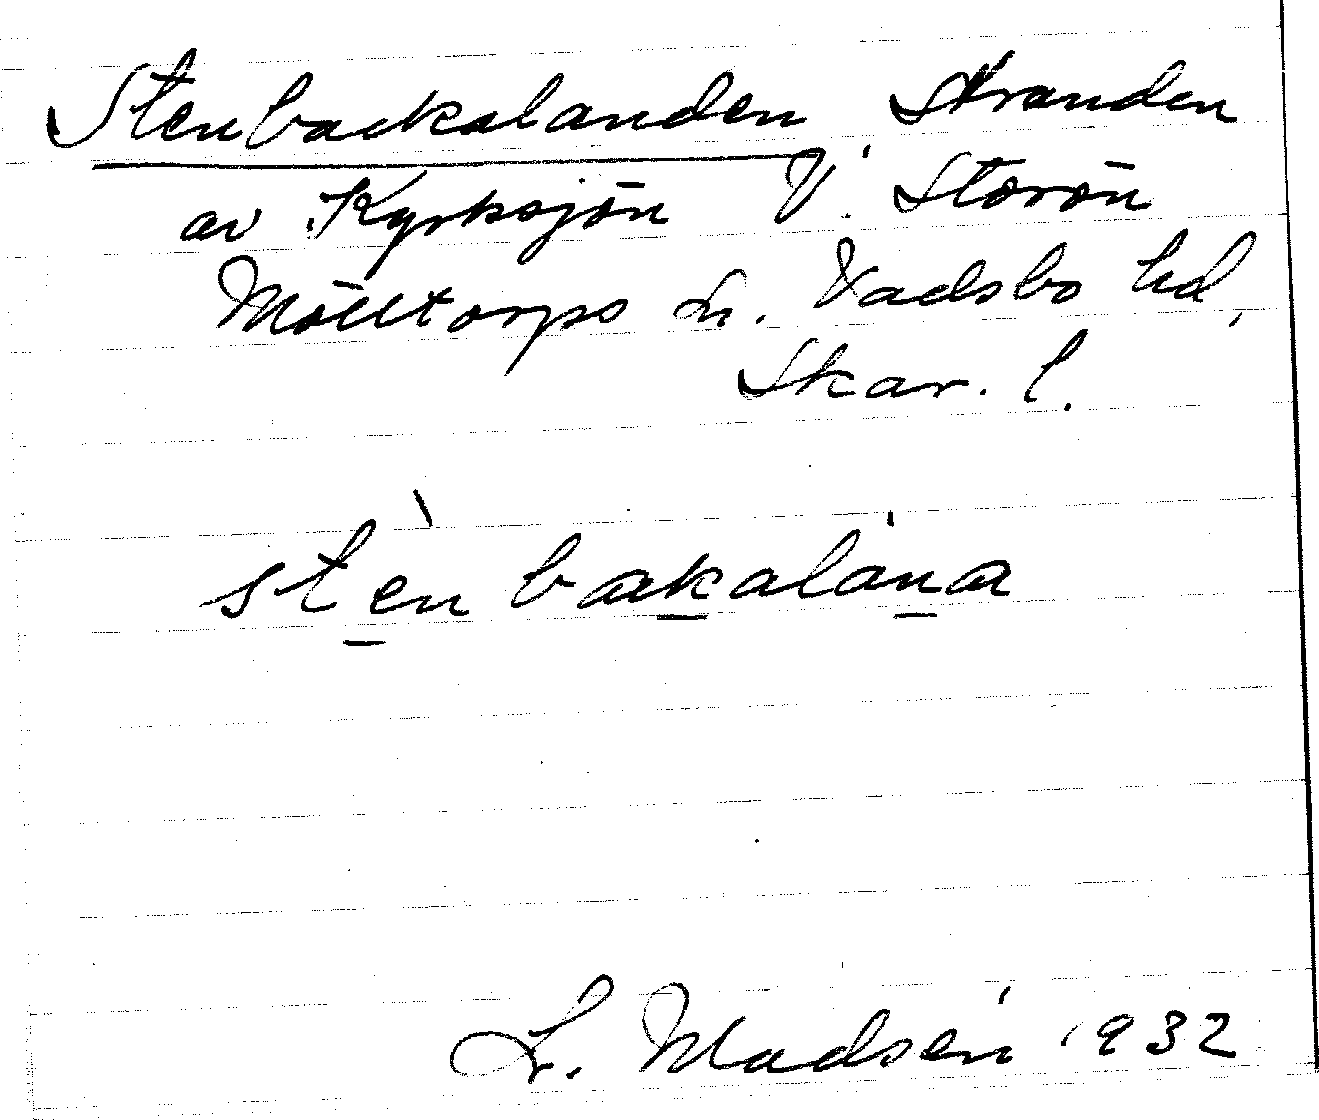 Stenbackalanden Stranden
av Kyrksjön V. Storön
Mölltorps sn. Vadsbo hd,
Skar. l.
stèn bakalána
L. Madsén 1932